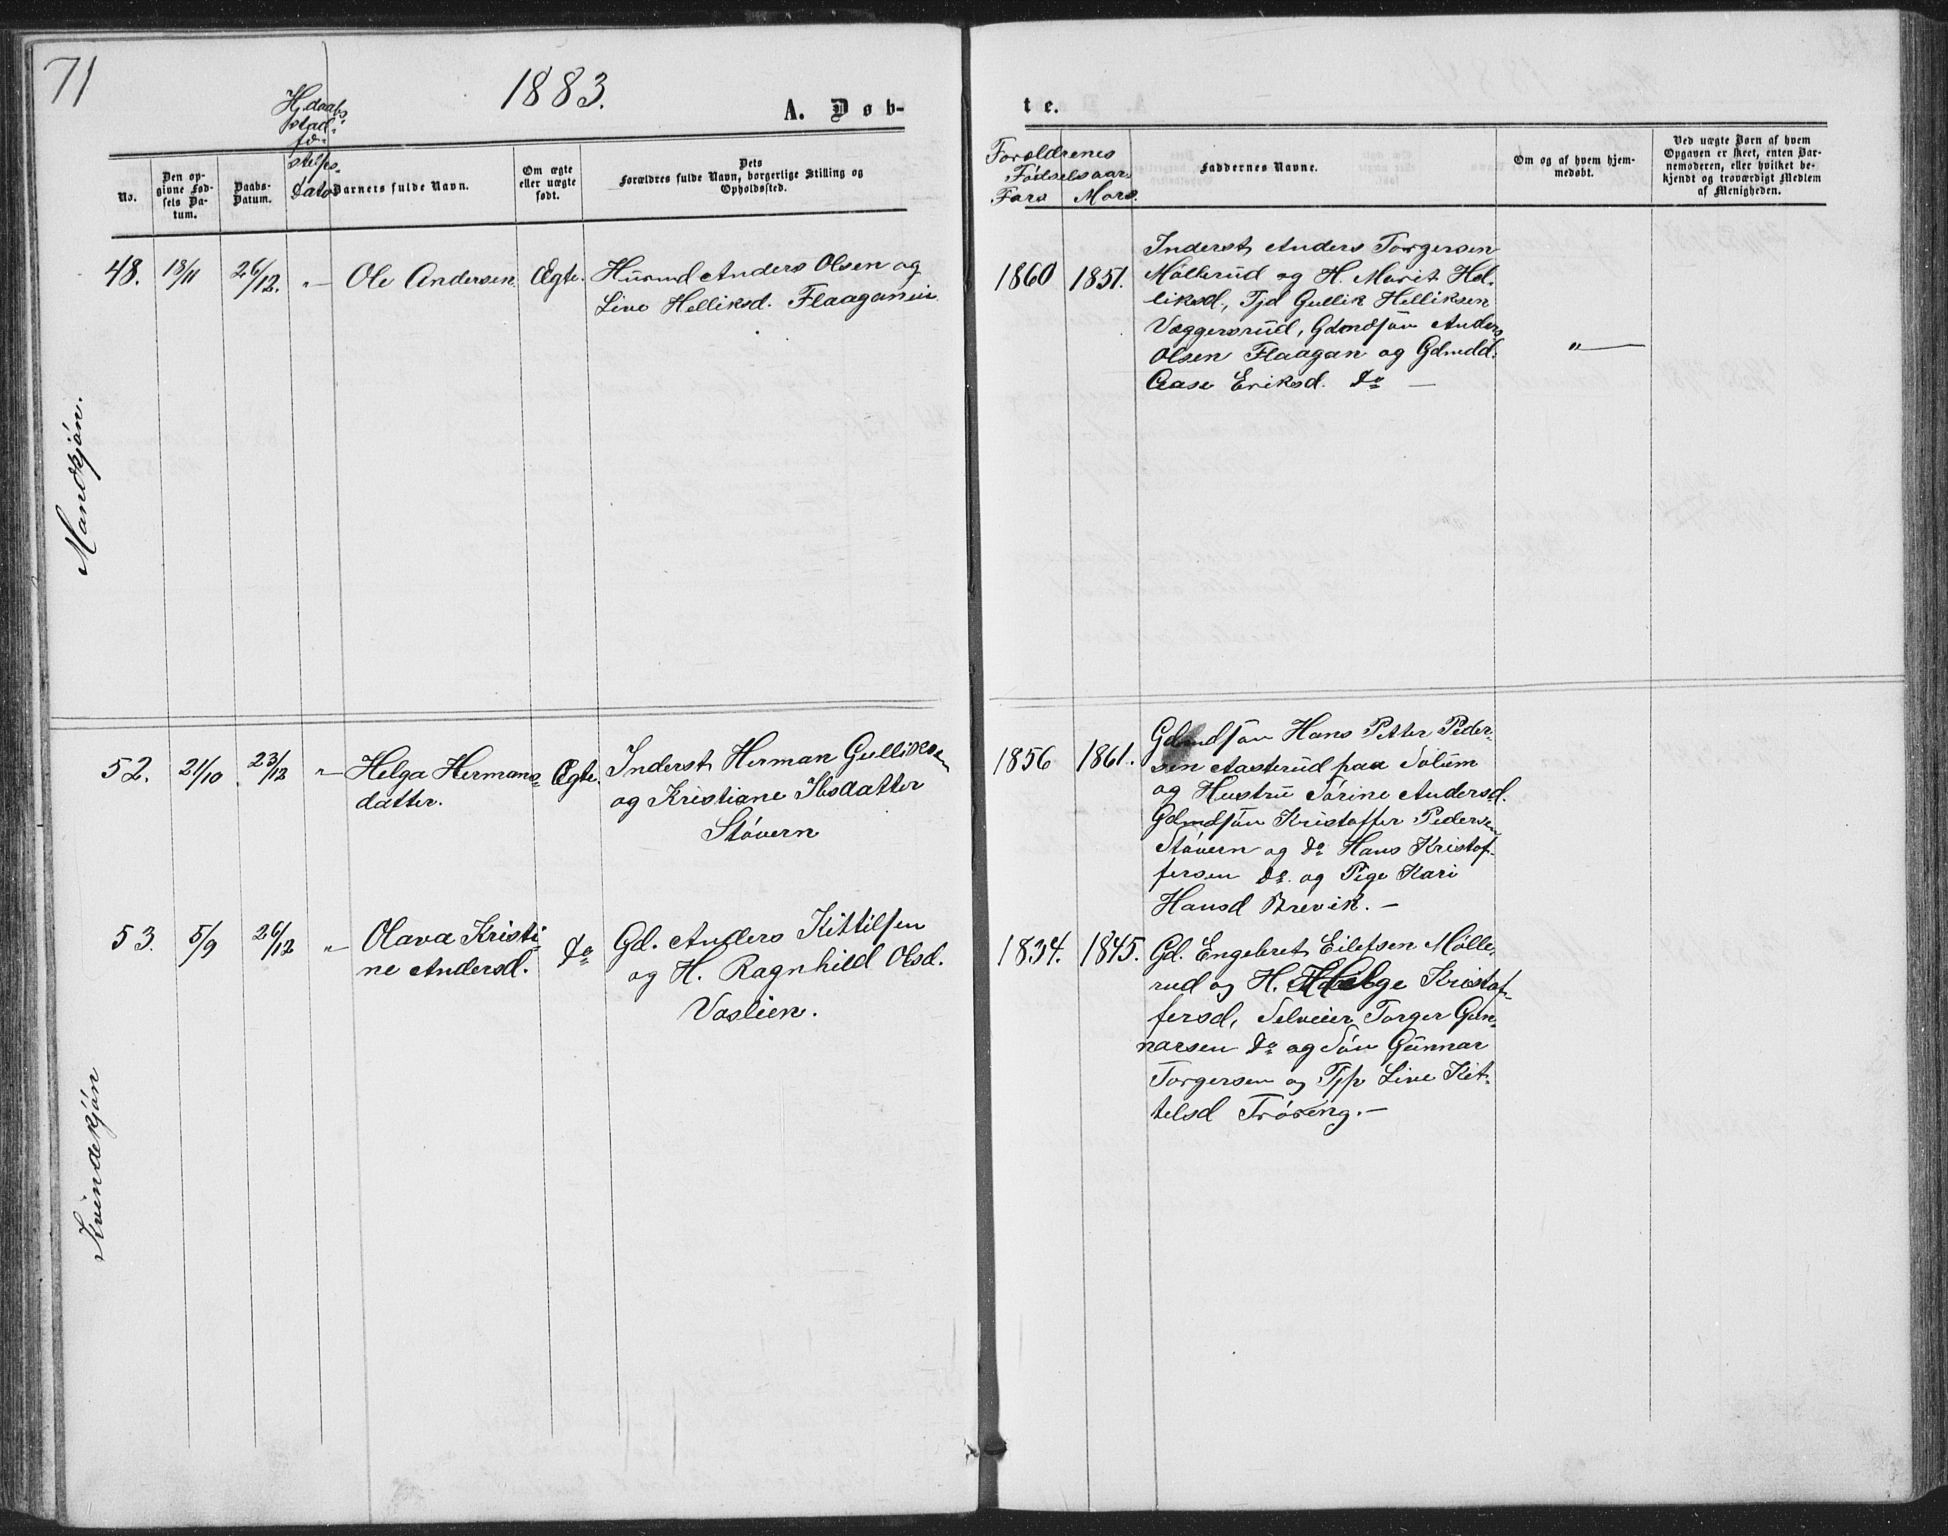 71
1883.
A. Døb-
te.
Hjdaabs
stad-
fæ-
stelses-
Dato
No.
Den op-
givne Fød-
sels Da-
tum.
Daabs-
Datum.
Barnets fulde Navn.
Om ægte
eller uægte
født.
Dets
Forældres fulde Navn, borgerlige Stilling og
Opholdssted.
Forældrenes
Fødselsaar
Fars Mors.
Faddernes Navne.
Om og af hvem hjem-
medøbt.
Ved uægte Børn af hvem
Opgaven er skeet, enten Bar-
nemoderen, eller hvilket be-
kjendt og troværdigt Medlem
af Menigheden.
Mandkjön.
48. 13/11 26/12. "— Ole Andersen Ægte. Husmd Anders Olsen og
Live Helliksd. Flaaganeie
1860 1851.
Inderst Anders Torgersen
Møllerud og H. Marit Hel-
liksd., Tjd Gullik Helliksen
Væggersrud, Gdmdsøn Anders
Olsen Flaagan og Gdmdd.
Aase Eriksd. do —
"—
52. 21/10 23/12 "— Helga Hermans-
datter.
Ægte. Inderst Herman Gulliksen
og Kristiane Ibsdatter
Støvern
1856 1861.
Gdmdsøn Hans Petter Peder-
sen Aasterud paa Solum
og Hustru Sørine Andersd.
Gdmdsøn Kristoffer Pedersen
Støvern og do Hans Kristof-
fersen do. og Pige Kari
Hansd Brevik. —
Kvindekjön
53. 5/9 26/12 "— Olava Kristi-
ne Andersd.
do Gd. Anders Kittilsen
og H. Ragnhild Olsd.
Vaslien.
1834. 1845.
Gd. Engebret Eilefsen Mølle-
rud og H. Helge Kristof-
fersd, Selveier Torger Gun-
narsen do og Søn Gunnar
Torgersen og Tjp Live Kit-
telsd Trøseng. —